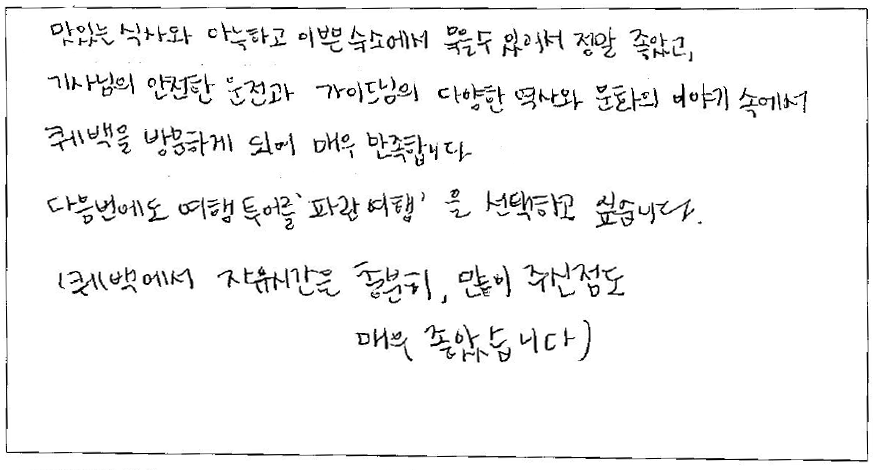 맛있는 식사와 아늑하고 이쁜 숙소에서 묵을수 있어서 정말 좋았고,
기사님의 안전한 운전과 가이드님의 다양한 역사와 문화의 이야기 속에서
퀘백을 방문하게 되어 매우 만족합니다
다음번에도 여행 투어를 '파란여행' 을 선택하고 싶습니다.
(퀘백에서 자유시간을 충분히, 많이 주신점도
매우 좋았습니다)